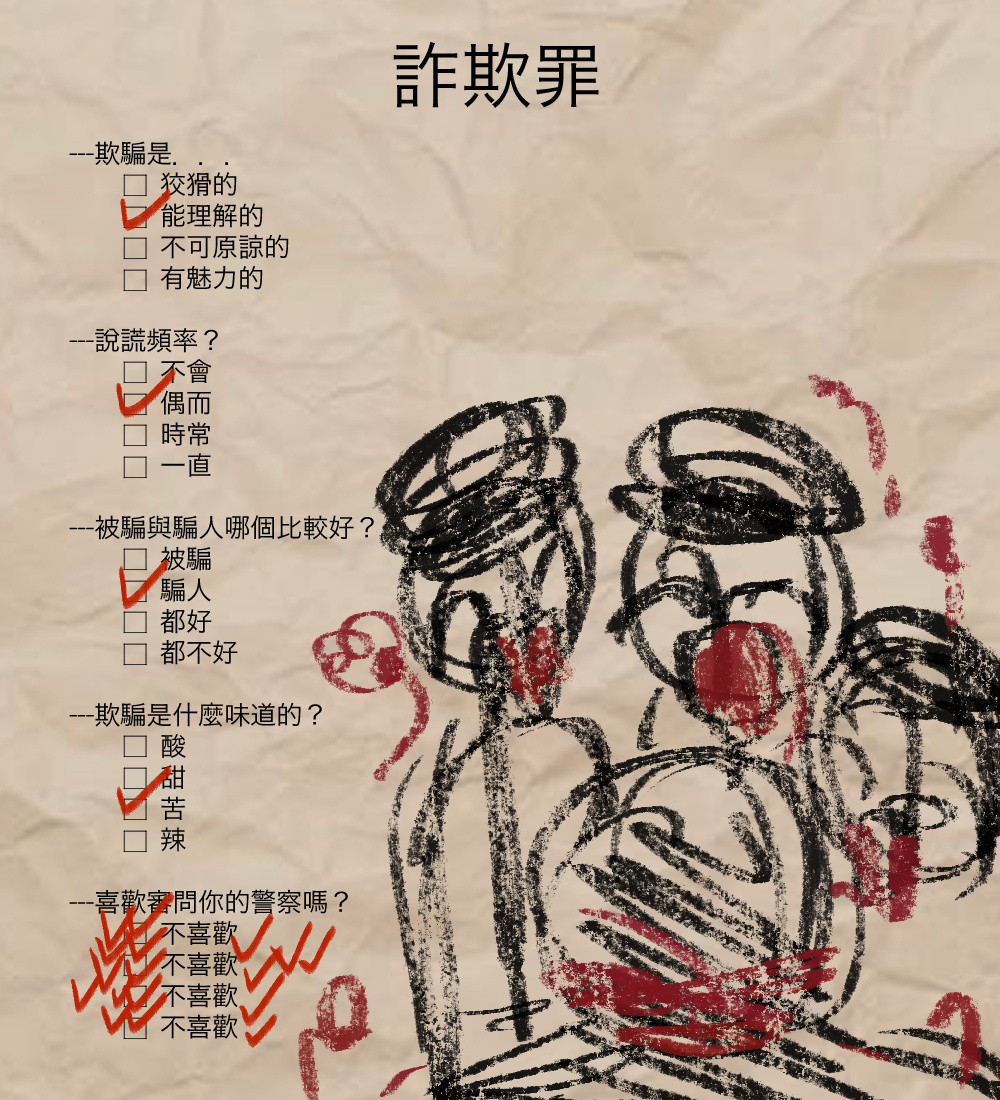 詐欺罪
---欺騙是. . .
□ 狡猾的
□ 能理解的
□ 不可原諒的
□ 有魅力的
---說謊頻率？
□ 不會
□ 偶而
□ 時常
□ 一直
---被騙與騙人哪個比較好？
□ 被騙
□ 騙人
□ 都好
□ 都不好
---欺騙是什麼味道的？
□ 酸
□ 甜
□ 苦
□ 辣
---喜歡審問你的警察嗎？
□ 不喜歡
□ 不喜歡
□ 不喜歡
□ 不喜歡